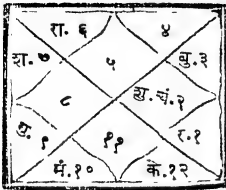 रा. ६
४
श. ७
५
बु. ३
८
शु. चं. २
गु. ९
११
र. १
मं. १०
के. १२